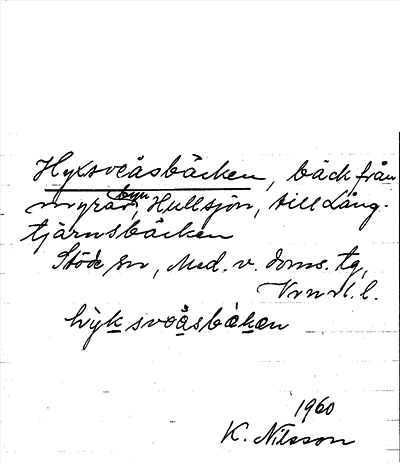 Hyxsveåsbäcken, bäck från
myrar, byn Hullsjön, till Lång-
tjärnsbäcken
Stöde sn, Med. v. doms. tg,
Vrnrl. l.
hyk sveåsbäken
1960
K. Nilsson